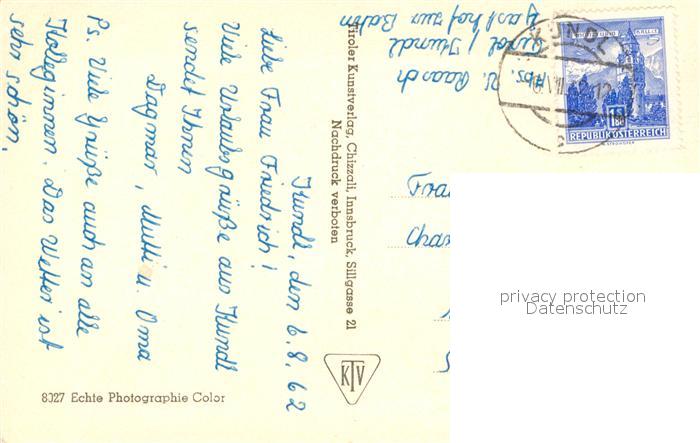 Kundl, den 6.8.62
Liebe Frau Friedrich!
Viele Urlaubsgrüße aus Kundl
sendet Ihnen
Dagmar, Mutti u. Oma
Ps. Viele Grüße auch an alle
Kolleginnen. Das Wetter ist
sehr schön.
8027 Echte Photographie Color
Tiroler Kunstverlag, Chizzali, Innsbruck, Sillgasse 21
Nachdruck verboten
KTV
Abs. Raasch
Tirol / Kundl
Gasthof zur Bahn
REPUBLIK ÖSTERREICH
privacy protection
Datenschutz